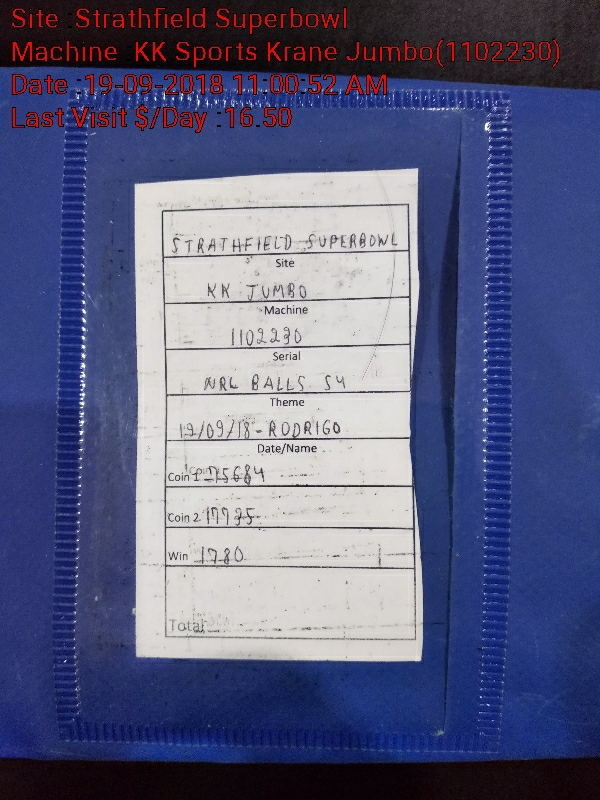 Site :Strathfield Superbowl
Machine :KK Sports Krane Jumbo(1102230)
Date :19-09-2018 11:00:52 AM
Last Visit $/Day :16.50
STRATHFIELD SUPERBOWL
Site
KK JUMBO
Machine
1102230
Serial
NRL BALLS S4
Theme
19/09/18-RODRIGO
Date/Name
Coin 1 75684
Coin 2 17735
Win 1780
Total